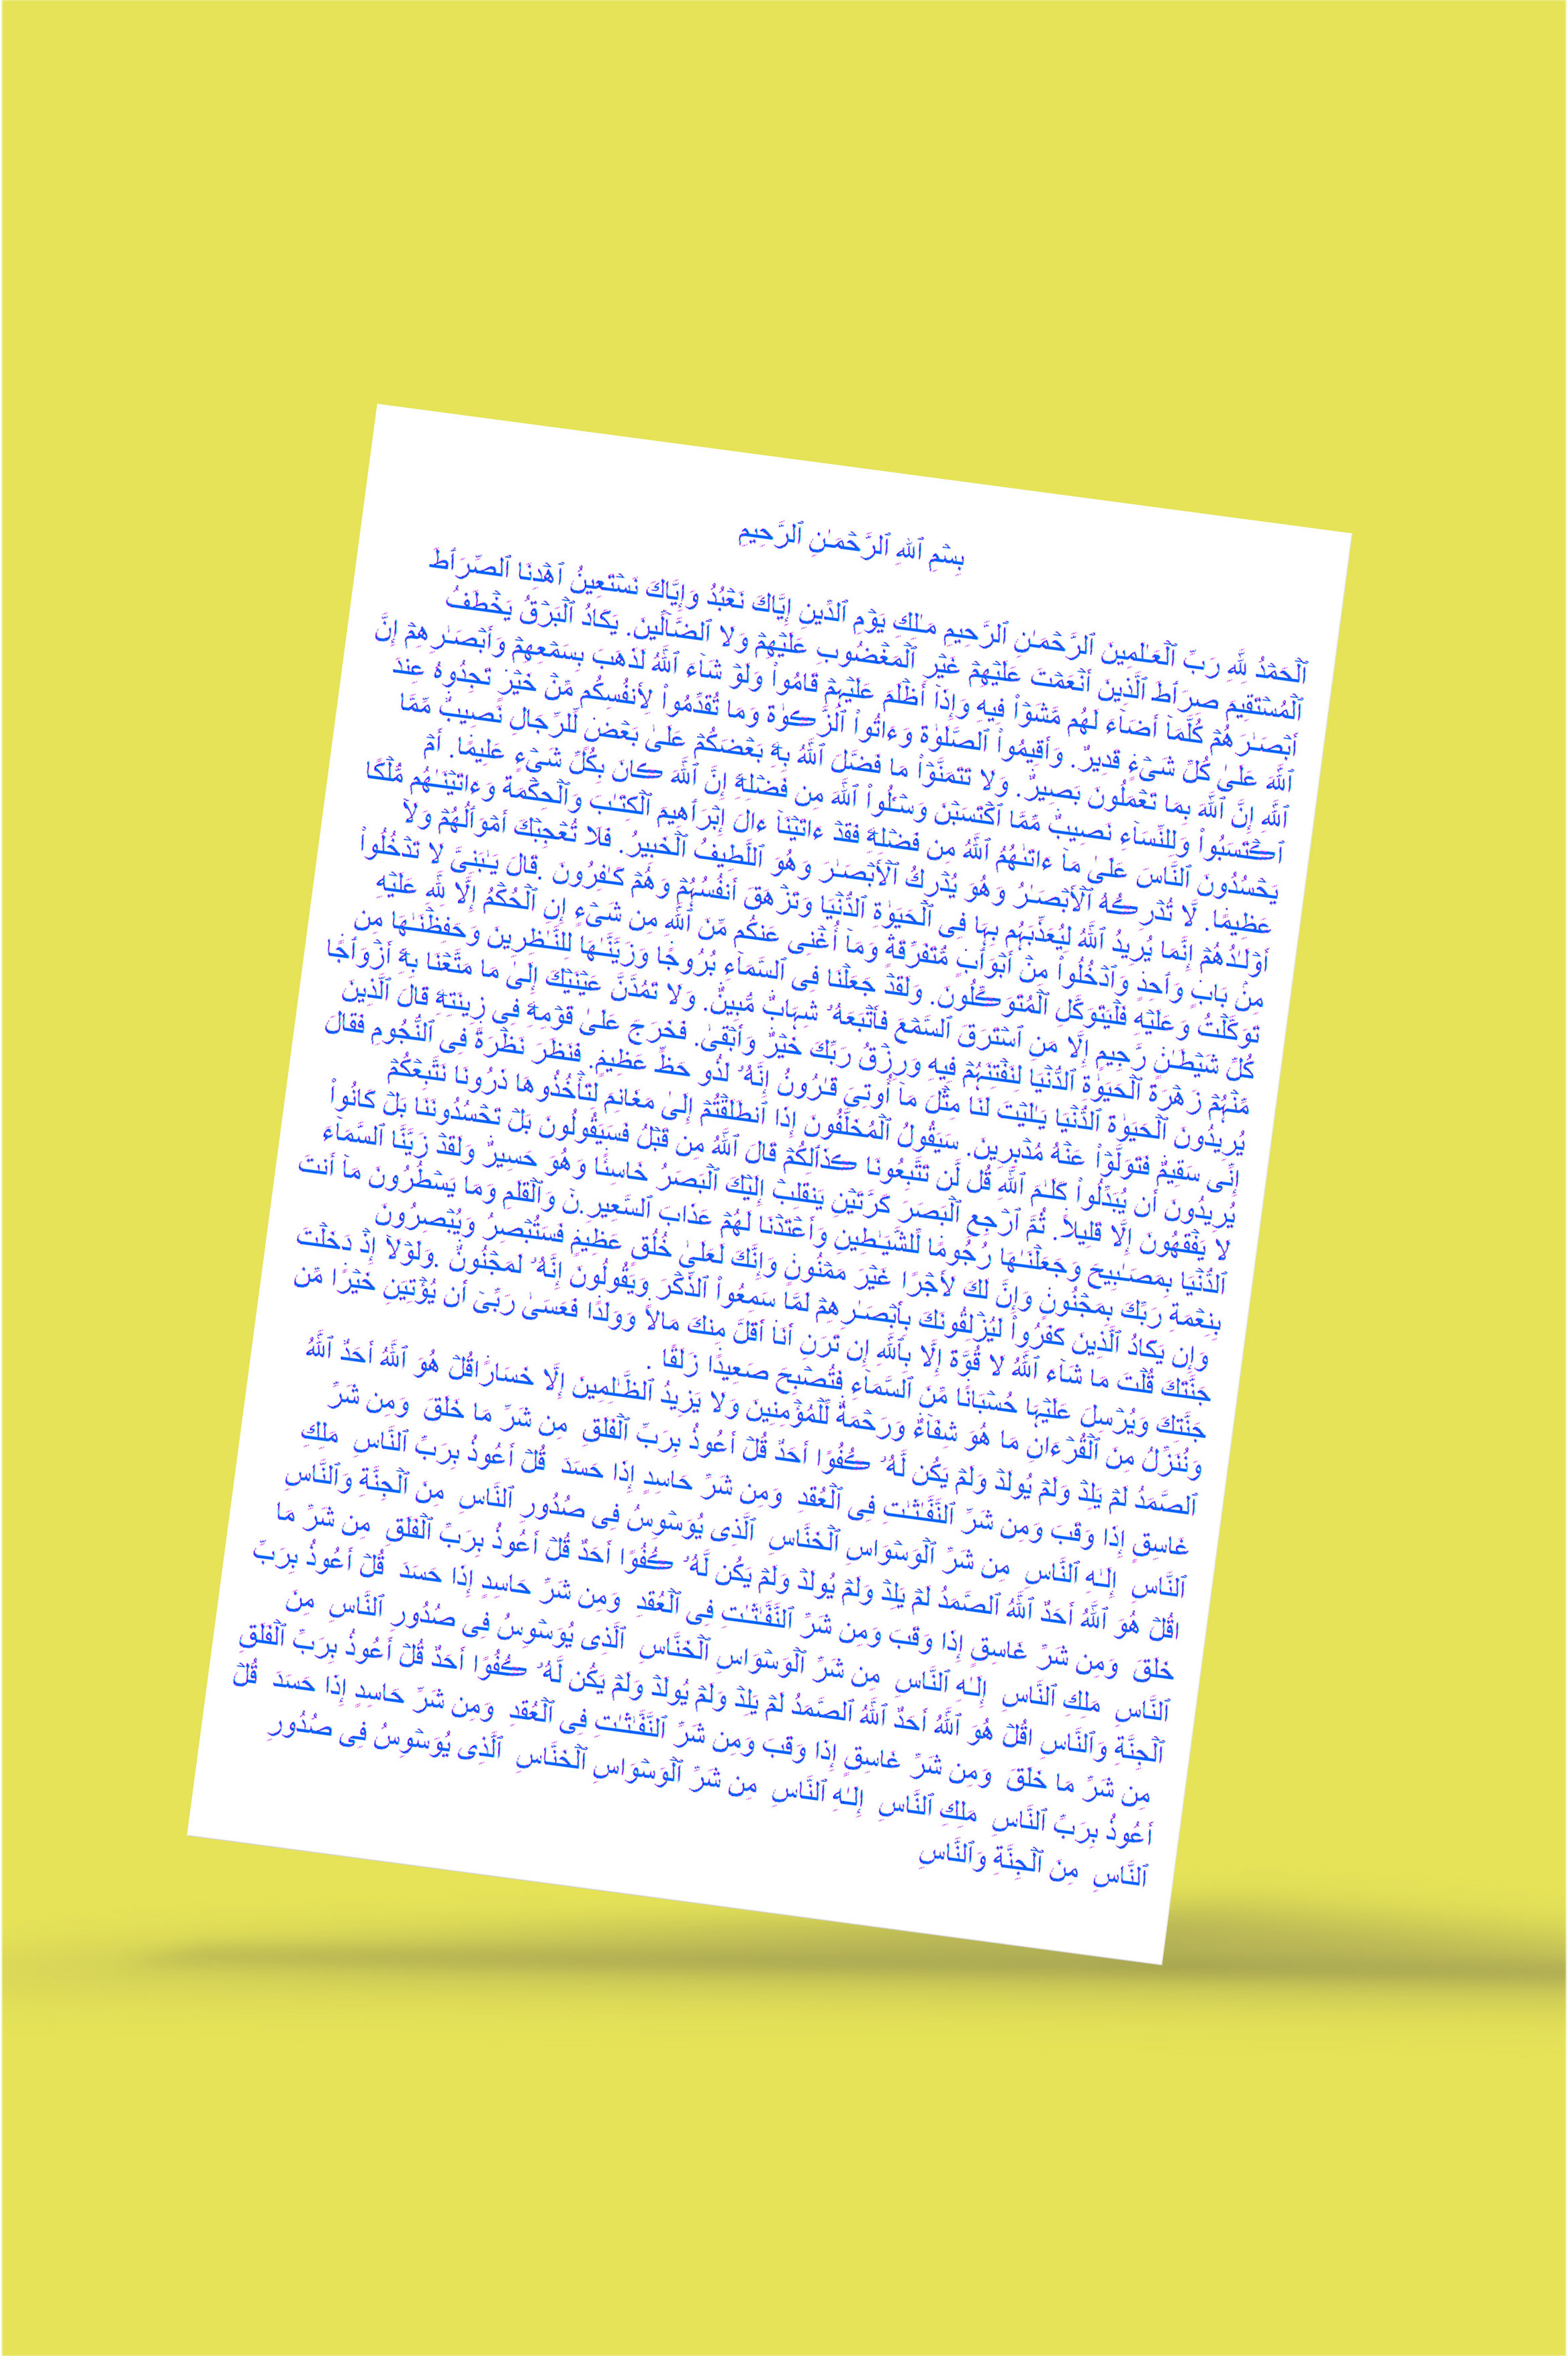 بِسۡمِ ٱللهِ ٱلرَّحۡمَـٰنِ ٱلرَّحِيمِ
ٱلۡحَمۡدُ لِلَّهِ رَبِّ ٱلۡعَـٰلَمِينَ ٱلرَّحۡمَـٰنِ ٱلرَّحِيمِ مَـٰلِكِ يَوۡمِ ٱلدِّينِ إِيَّاكَ نَعۡبُدُ وَإِيَّاكَ نَسۡتَعِينُ ٱهۡدِنَا ٱلصِّرَٲطَ
ٱلۡمُسۡتَقِيمَ صِرَٲطَ ٱلَّذِينَ أَنۡعَمۡتَ عَلَيۡهِمۡ غَيۡرِ ٱلۡمَغۡضُوبِ عَلَيۡهِمۡ وَلَا ٱلضَّآلِّينَ. يَكَادُ ٱلۡبَرۡقُ يَخۡطَفُ
أَبۡصَـٰرَهُمۡ كُلَّمَآ أَضَآءَ لَهُم مَّشَوۡاْ فِيهِ وَإِذَآ أَظۡلَمَ عَلَيۡہِمۡ قَامُواْ وَلَوۡ شَآءَ ٱللَّهُ لَذَهَبَ بِسَمۡعِهِمۡ وَأَبۡصَـٰرِهِمۡ إِنَّ
ٱللَّهَ عَلَىٰ كُلِّ شَىۡءٍ قَدِيرٌ. وَأَقِيمُواْ ٱلصَّلَوٰةَ وَءَاتُواْ ٱلزَّڪَوٰةَ وَمَا تُقَدِّمُواْ لِأَنفُسِكُم مِّنۡ خَيۡرٍ تَجِدُوهُ عِندَ
ٱللَّهِ إِنَّ ٱللَّهَ بِمَا تَعۡمَلُونَ بَصِيرٌ. وَلَا تَتَمَنَّوۡاْ مَا فَضَّلَ ٱللَّهُ بِهِۦ بَعۡضَكُمۡ عَلَىٰ بَعۡضٍ لِّلرِّجَالِ نَصِيبٌ مِّمَّا
ٱڪۡتَسَبُواْ وَلِلنِّسَآءِ نَصِيبٌ مِّمَّا ٱكۡتَسَبۡنَ وَسۡـَٔلُواْ ٱللَّهَ مِن فَضۡلِهِۦ إِنَّ ٱللَّهَ ڪَانَ بِكُلِّ شَىۡءٍ عَلِيمًا. أَمۡ
يَحۡسُدُونَ ٱلنَّاسَ عَلَىٰ مَآ ءَاتَٮٰهُمُ ٱللَّهُ مِن فَضۡلِهِۦ فَقَدۡ ءَاتَيۡنَآ ءَالَ إِبۡرَٲهِيمَ ٱلۡكِتَـٰبَ وَٱلۡحِكۡمَةَ وَءَاتَيۡنَـٰهُم مُّلۡكًا
عَظِيمًا. لَّا تُدۡرِڪُهُ ٱلۡأَبۡصَـٰرُ وَهُوَ يُدۡرِكُ ٱلۡأَبۡصَـٰرَ وَهُوَ ٱللَّطِيفُ ٱلۡخَبِيرُ. فَلَا تُعۡجِبۡكَ أَمۡوَٲلُهُمۡ وَلَآ
أَوۡلَـٰدُهُمۡ إِنَّمَا يُرِيدُ ٱللَّهُ لِيُعَذِّبَہُم بِہَا فِى ٱلۡحَيَوٰةِ ٱلدُّنۡيَا وَتَزۡهَقَ أَنفُسُہُمۡ وَهُمۡ كَـٰفِرُونَ .قَالَ يَـٰبَنِىَّ لَا تَدۡخُلُواْ
مِنۢ بَابٍ وَٲحِدٍ وَٱدۡخُلُواْ مِنۡ أَبۡوَٲبٍ مُّتَفَرِّقَةٍ وَمَآ أُغۡنِى عَنكُم مِّنَ ٱللَّهِ مِن شَىۡءٍ إِنِ ٱلۡحُكۡمُ إِلَّا لِلَّهِ عَلَيۡهِ
تَوَكَّلۡتُ وَعَلَيۡهِ فَلۡيَتَوَكَّلِ ٱلۡمُتَوَڪِّلُونَ. وَلَقَدۡ جَعَلۡنَا فِى ٱلسَّمَآءِ بُرُوجًا وَزَيَّنَّـٰهَا لِلنَّـٰظِرِينَ وَحَفِظۡنَـٰهَا مِن
كُلِّ شَيۡطَـٰنٍ رَّجِيمٍ إِلَّا مَنِ ٱسۡتَرَقَ ٱلسَّمۡعَ فَأَتۡبَعَهُ ۥ شِہَابٌ مُّبِينٌ. وَلَا تَمُدَّنَّ عَيۡنَيۡكَ إِلَىٰ مَا مَتَّعۡنَا بِهِۦۤ أَزۡوَٲجًا
مِّنۡہُمۡ زَهۡرَةَ ٱلۡحَيَوٰةِ ٱلدُّنۡيَا لِنَفۡتِنَہُمۡ فِيهِ وَرِزۡقُ رَبِّكَ خَيۡرٌ وَأَبۡقَىٰ. فَخَرَجَ عَلَىٰ قَوۡمِهِۦ فِى زِينَتِهِۦ قَالَ ٱلَّذِينَ
يُرِيدُونَ ٱلۡحَيَوٰةَ ٱلدُّنۡيَا يَـٰلَيۡتَ لَنَا مِثۡلَ مَآ أُوتِىَ قَـٰرُونُ إِنَّهُ ۥ لَذُو حَظٍّ عَظِيمٍ. فَنَظَرَ نَظۡرَةً فِى ٱلنُّجُومِ فَقَالَ
إِنِّى سَقِيمٌ فَتَوَلَّوۡاْ عَنۡهُ مُدۡبِرِينَ. سَيَقُولُ ٱلۡمُخَلَّفُونَ إِذَا ٱنطَلَقۡتُمۡ إِلَىٰ مَغَانِمَ لِتَأۡخُذُوهَا ذَرُونَا نَتَّبِعۡكُمۡ
يُرِيدُونَ أَن يُبَدِّلُواْ كَلَـٰمَ ٱللَّهِ قُل لَّن تَتَّبِعُونَا ڪَذَٲلِكُمۡ قَالَ ٱللَّهُ مِن قَبۡلُ فَسَيَقُولُونَ بَلۡ تَحۡسُدُونَنَا بَلۡ كَانُواْ
لَا يَفۡقَهُونَ إِلَّا قَلِيلاً. ثُمَّ ٱرۡجِعِ ٱلۡبَصَرَ كَرَّتَيۡنِ يَنقَلِبۡ إِلَيۡكَ ٱلۡبَصَرُ خَاسِئًا وَهُوَ حَسِيرٌ وَلَقَدۡ زَيَّنَّا ٱلسَّمَآءَ
ٱلدُّنۡيَا بِمَصَـٰبِيحَ وَجَعَلۡنَـٰهَا رُجُومًا لِّلشَّيَـٰطِينِ وَأَعۡتَدۡنَا لَهُمۡ عَذَابَ ٱلسَّعِيرِ.نٓ وَٱلۡقَلَمِ وَمَا يَسۡطُرُونَ مَآ أَنتَ
بِنِعۡمَةِ رَبِّكَ بِمَجۡنُونٍ وَإِنَّ لَكَ لَأَجۡرًا غَيۡرَ مَمۡنُونٍ وَإِنَّكَ لَعَلَىٰ خُلُقٍ عَظِيمٍ فَسَتُبۡصِرُ وَيُبۡصِرُونَ
وَإِن يَكَادُ ٱلَّذِينَ كَفَرُواْ لَيُزۡلِقُونَكَ بِأَبۡصَـٰرِهِمۡ لَمَّا سَمِعُواْ ٱلذِّكۡرَ وَيَقُولُونَ إِنَّهُ ۥ لَمَجۡنُونٌ .وَلَوۡلَآ إِذۡ دَخَلۡتَ
جَنَّتَكَ قُلۡتَ مَا شَآءَ ٱللَّهُ لَا قُوَّةَ إِلَّا بِٱللَّهِ إِن تَرَنِ أَنَا۟ أَقَلَّ مِنكَ مَالاً وَوَلَدًا فَعَسَىٰ رَبِّىٓ أَن يُؤۡتِيَنِ خَيۡرًا مِّن
جَنَّتِكَ وَيُرۡسِلَ عَلَيۡہَا حُسۡبَانًا مِّنَ ٱلسَّمَآءِ فَتُصۡبِحَ صَعِيدًا زَلَقًا .
وَنُنَزِّلُ مِنَ ٱلۡقُرۡءَانِ مَا هُوَ شِفَآءٌ وَرَحۡمَةٌ لِّلۡمُؤۡمِنِينَ وَلَا يَزِيدُ ٱلظَّـٰلِمِينَ إِلَّا خَسَارًاقُلۡ هُوَ ٱللَّهُ أَحَدٌ ٱللَّهُ
ٱلصَّمَدُ لَمۡ يَلِدۡ وَلَمۡ يُولَدۡ وَلَمۡ يَكُن لَّهُ ۥ ڪُفُوًا أَحَدٌ قُلۡ أَعُوذُ بِرَبِّ ٱلۡفَلَقِ مِن شَرِّ مَا خَلَقَ وَمِن شَرِّ
غَاسِقٍ إِذَا وَقَبَ وَمِن شَرِّ ٱلنَّفَّـٰثَـٰتِ فِى ٱلۡعُقَدِ وَمِن شَرِّ حَاسِدٍ إِذَا حَسَدَ قُلۡ أَعُوذُ بِرَبِّ ٱلنَّاسِ مَلِكِ
ٱلنَّاسِ إِلَـٰهِ ٱلنَّاسِ مِن شَرِّ ٱلۡوَسۡوَاسِ ٱلۡخَنَّاسِ ٱلَّذِى يُوَسۡوِسُ فِى صُدُورِ ٱلنَّاسِ مِنَ ٱلۡجِنَّةِ وَٱلنَّاسِ
اقُلۡ هُوَ ٱللَّهُ أَحَدٌ ٱللَّهُ ٱلصَّمَدُ لَمۡ يَلِدۡ وَلَمۡ يُولَدۡ وَلَمۡ يَكُن لَّهُ ۥ ڪُفُوًا أَحَدٌ قُلۡ أَعُوذُ بِرَبِّ ٱلۡفَلَقِ مِن شَرِّ مَا
خَلَقَ وَمِن شَرِّ غَاسِقٍ إِذَا وَقَبَ وَمِن شَرِّ ٱلنَّفَّـٰثَـٰتِ فِى ٱلۡعُقَدِ وَمِن شَرِّ حَاسِدٍ إِذَا حَسَدَ قُلۡ أَعُوذُ بِرَبِّ
ٱلنَّاسِ مَلِكِ ٱلنَّاسِ إِلَـٰهِ ٱلنَّاسِ مِن شَرِّ ٱلۡوَسۡوَاسِ ٱلۡخَنَّاسِ ٱلَّذِى يُوَسۡوِسُ فِى صُدُورِ ٱلنَّاسِ مِنَ
ٱلۡجِنَّةِ وَٱلنَّاسِ اقُلۡ هُوَ ٱللَّهُ أَحَدٌ ٱللَّهُ ٱلصَّمَدُ لَمۡ يَلِدۡ وَلَمۡ يُولَدۡ وَلَمۡ يَكُن لَّهُ ۥ ڪُفُوًا أَحَدٌ قُلۡ أَعُوذُ بِرَبِّ ٱلۡفَلَقِ
مِن شَرِّ مَا خَلَقَ وَمِن شَرِّ غَاسِقٍ إِذَا وَقَبَ وَمِن شَرِّ ٱلنَّفَّـٰثَـٰتِ فِى ٱلۡعُقَدِ وَمِن شَرِّ حَاسِدٍ إِذَا حَسَدَ قُلۡ
أَعُوذُ بِرَبِّ ٱلنَّاسِ مَلِكِ ٱلنَّاسِ إِلَـٰهِ ٱلنَّاسِ مِن شَرِّ ٱلۡوَسۡوَاسِ ٱلۡخَنَّاسِ ٱلَّذِى يُوَسۡوِسُ فِى صُدُورِ
ٱلنَّاسِ مِنَ ٱلۡجِنَّةِ وَٱلنَّاسِ